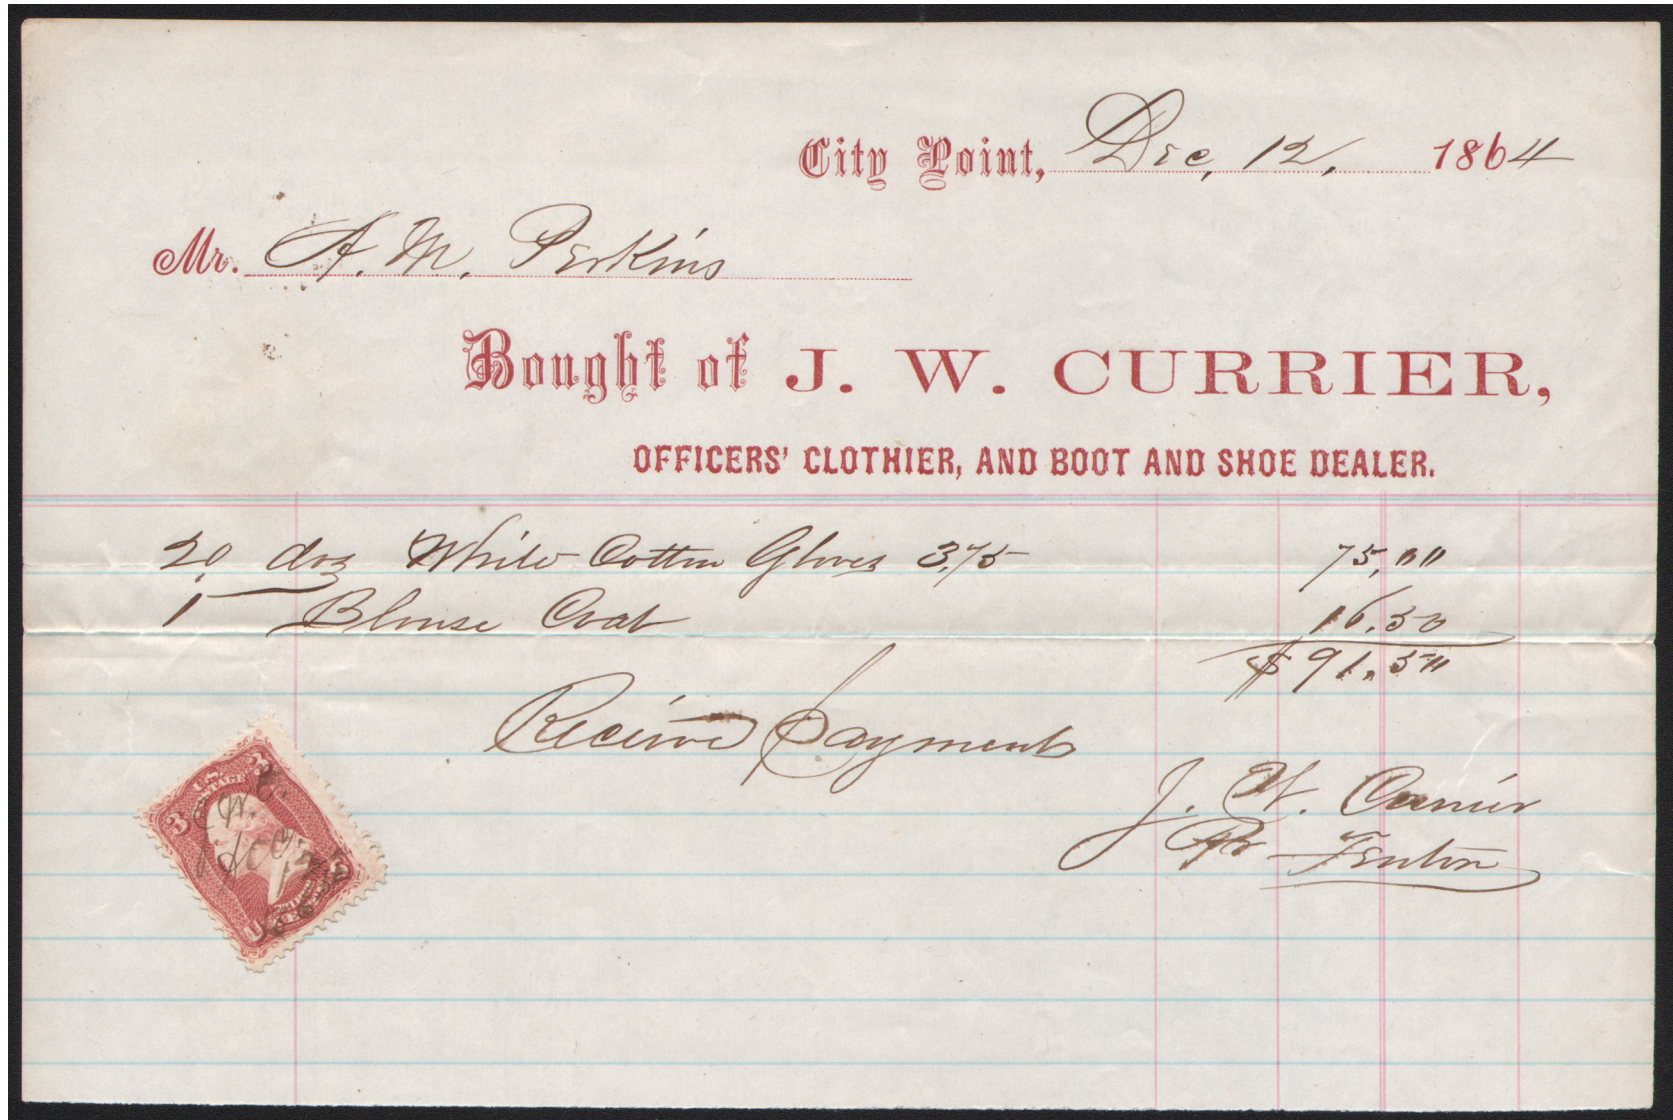 City Point, Dec, 12, 1864
Mr. A. M. Perkins
Bought of J. W. CURRIER,
OFFICERS' CLOTHIER, AND BOOT AND SHOE DEALER.
20 doz White Cotton Gloves 3,75 75,00
1 Blouse Coat 16.50
$91.50
Receivd payment
J. W. Currier
Pr Fenton
U.S. POSTAGE
3 3
J. W. C.
Dec 12